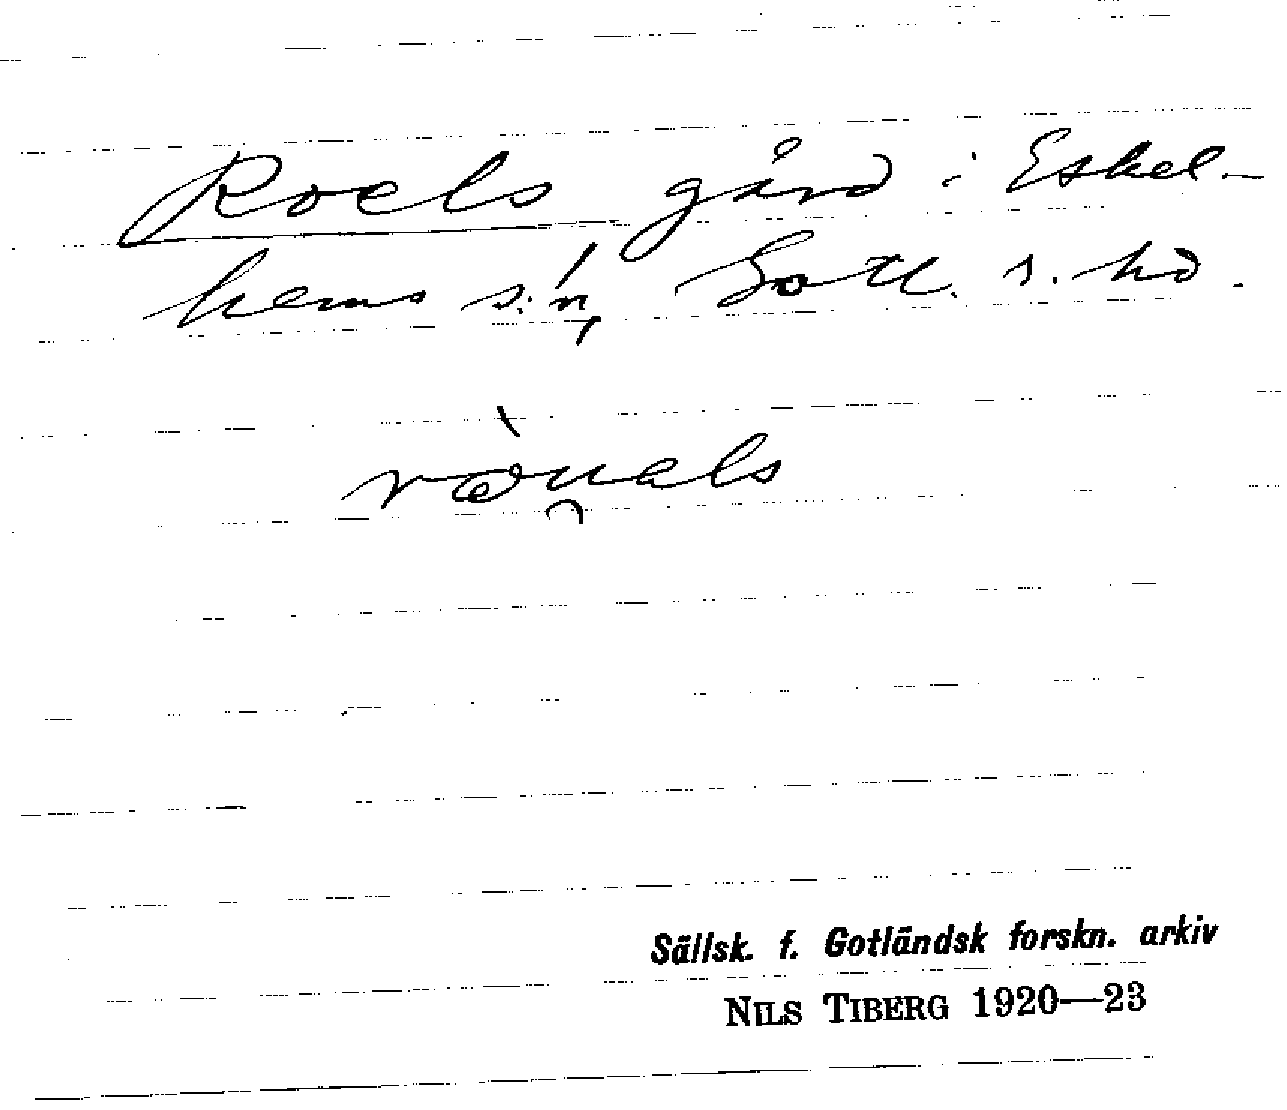 Roels gård i Eskel-
hems s:n, Gotl. s. hd.
ròu̯als
Sällsk. f. Gotländsk forskn. arkiv
NILS TIBERG 1920—23